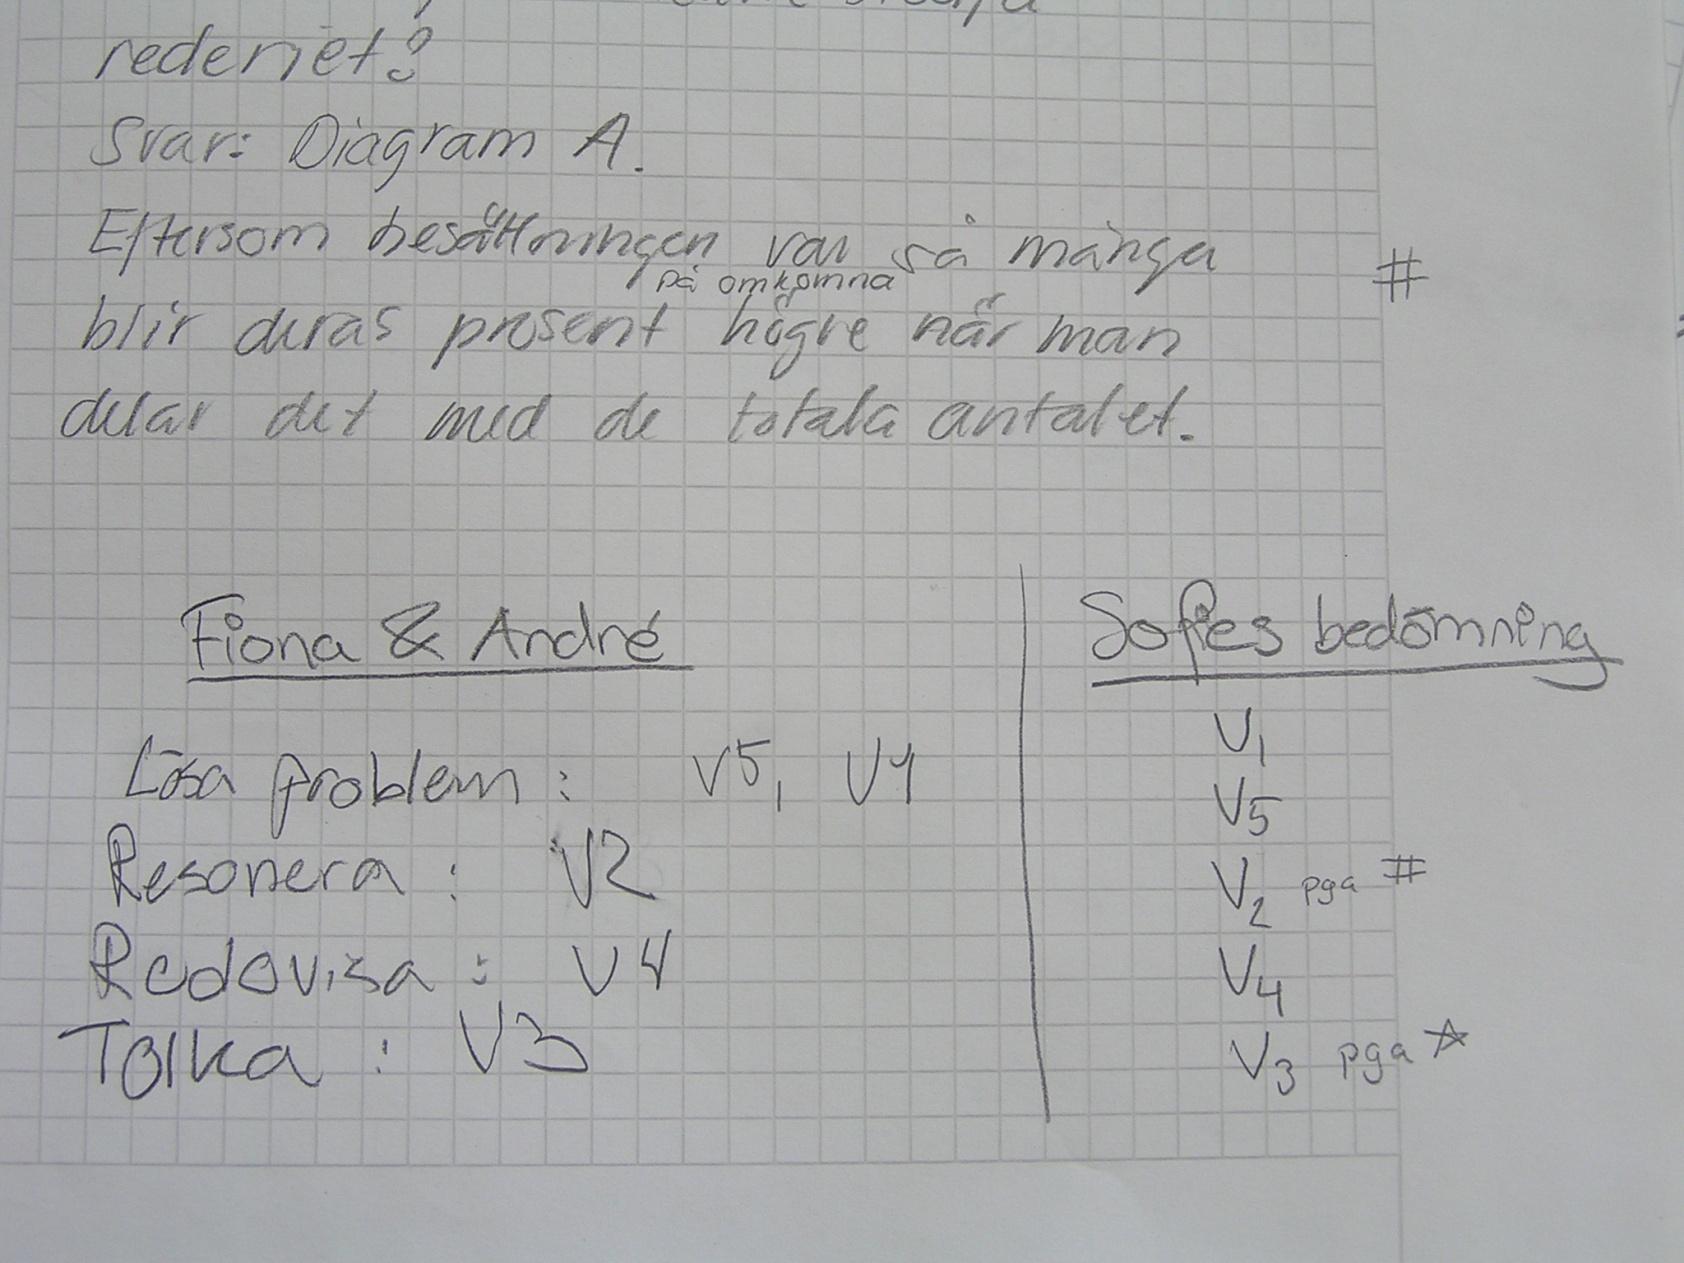 rederiet?
Svar: Diagram A.
Eftersom besättningen var så många #
på omkomna
blir deras prosent högre når man
delar det med de totala antalet.
Fiona & André
Lösa problem: V5, V1
Resonera: V2
Redovisa: V4
Tolka: V3
Sofies bedömning
V1
V5
V2 pga #
V4
V3 pga ☆